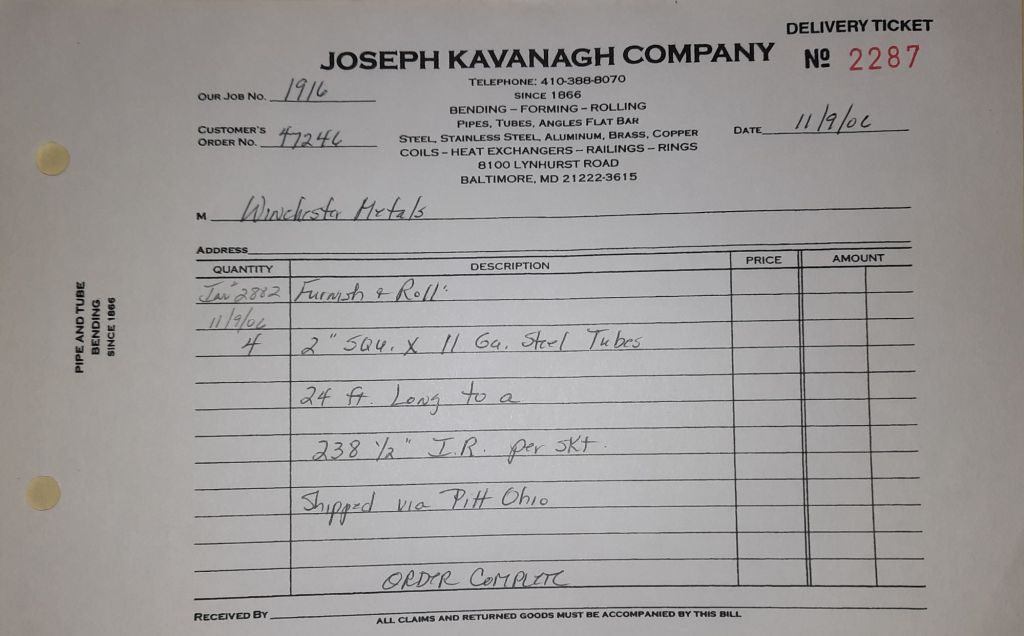 DELIVERY TICKET
JOSEPH KAVANAGH COMPANY
Nº 2287
TELEPHONE: 410-388-8070
SINCE 1866
BENDING – FORMING – ROLLING
PIPES, TUBES, ANGLES FLAT BAR
STEEL, STAINLESS STEEL, ALUMINUM, BRASS, COPPER
COILS – HEAT EXCHANGERS – RAILINGS – RINGS
8100 LYNHURST ROAD
BALTIMORE, MD 21222-3615
OUR JOB NO. 1916
CUSTOMER'S
ORDER NO. 47246
DATE 11/9/06
M Winchester Metals
ADDRESS
QUANTITY DESCRIPTION PRICE AMOUNT
2882 Furnish & Roll:
11/9/06
4 2" squ. x 11 Ga. Steel Tubes
24 ft. Long to a
238 1/2" I.R. per skt.
Shipped via Pitt Ohio
ORDER COMPLETE
RECEIVED BY
ALL CLAIMS AND RETURNED GOODS MUST BE ACCOMPANIED BY THIS BILL
PIPE AND TUBE
BENDING
SINCE 1866